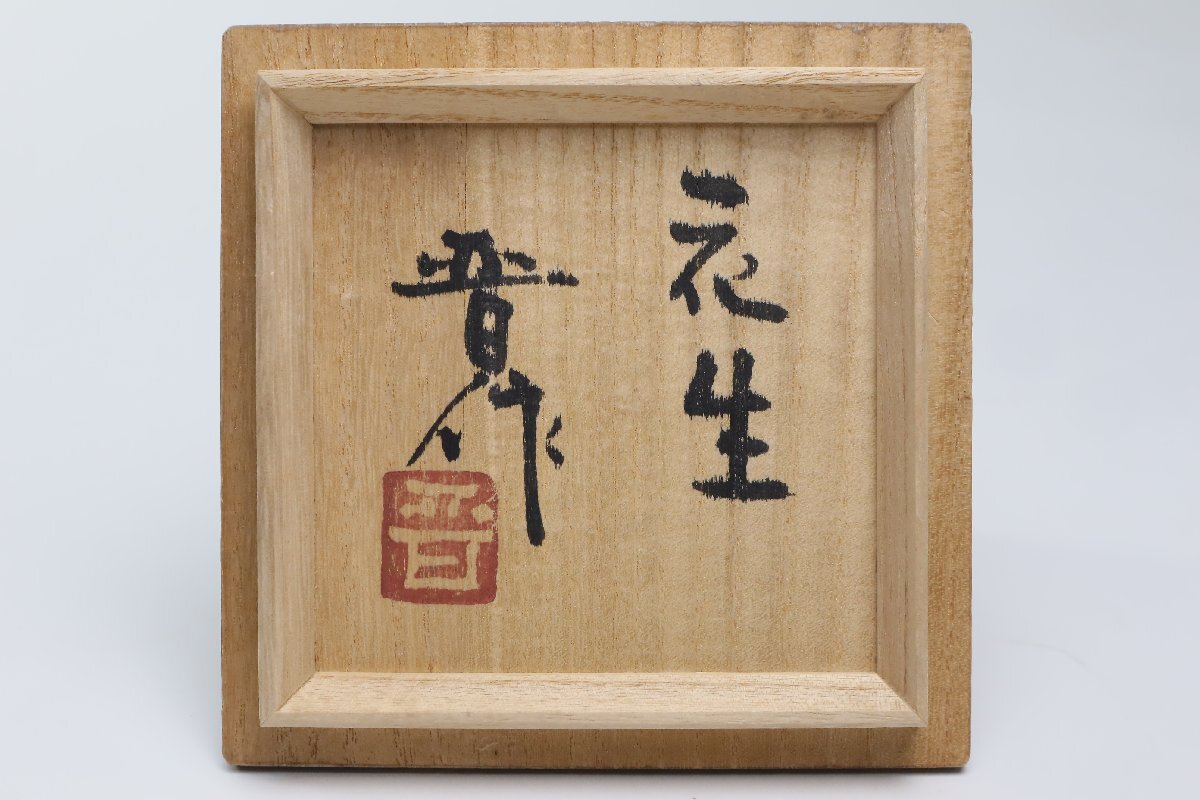 花生
晋作
晋